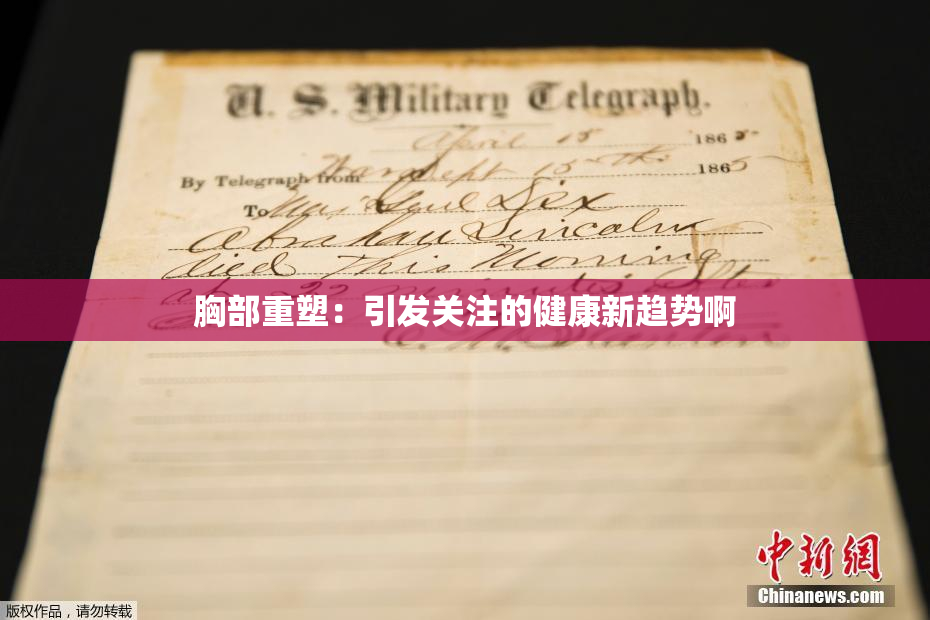 U. S. Military Telegraph.
April 15 1865
By Telegraph from War Dept 15th 1865
To Maj Genl Dix
Abraham Lincoln
died This Morning
at 22 minutes after
胸部重塑：引发关注的健康新趋势啊
E. M. Stanton
中新网
Chinanews.com
版权作品，请勿转载